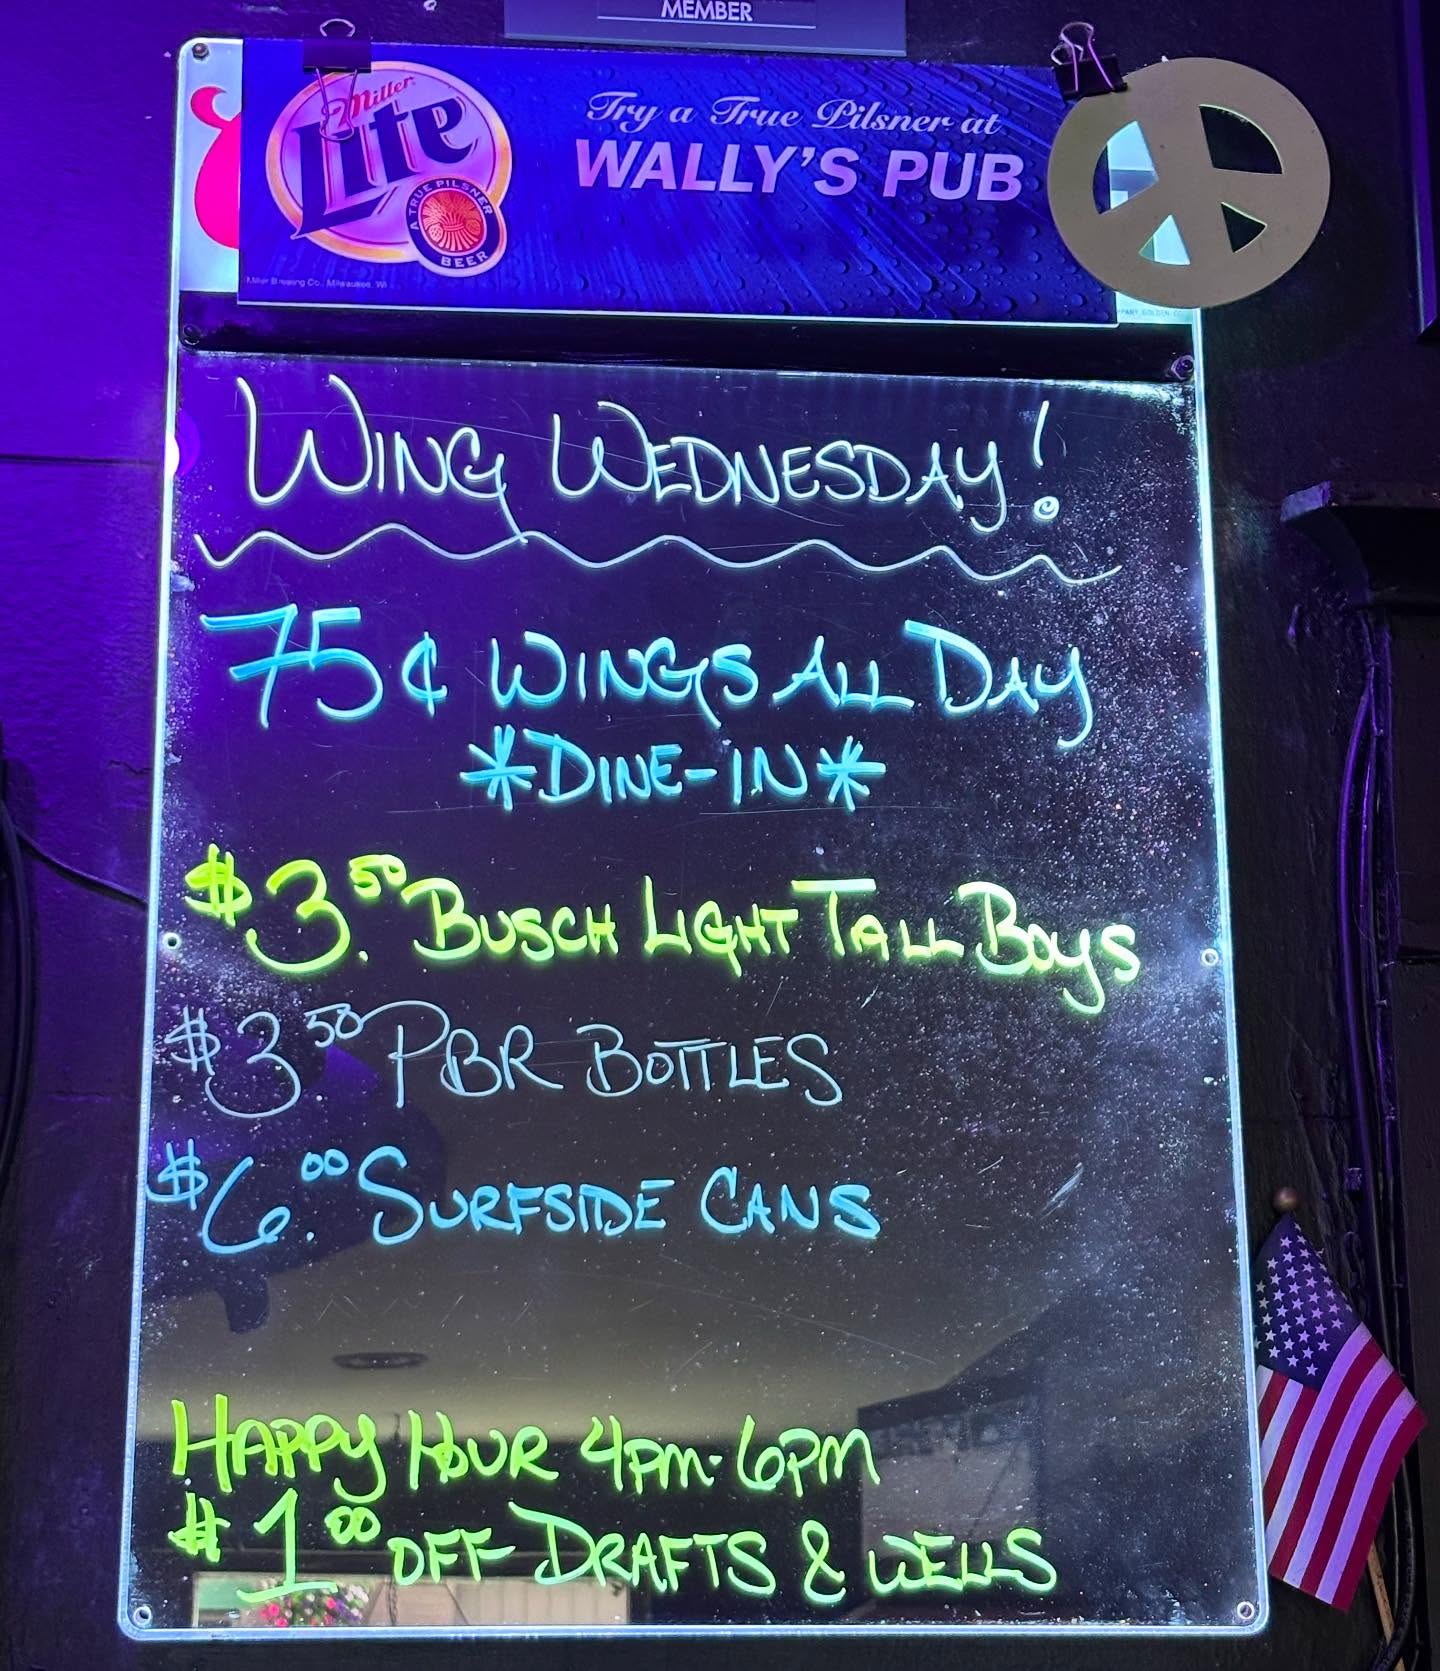 MEMBER
Miller
Lite
A TRUE PILSNER
BEER
Try a True Pilsner at
WALLY'S PUB
Miller Brewing Co., Milwaukee, WI
WING WEDNESDAY!
75¢ WINGS ALL DAY
*DINE-IN*
$3.50 BUSCH LIGHT TALL BOYS
$3.50 PBR BOTTLES
$6.00 SURFSIDE CANS
HAPPY HOUR 4PM-6PM
$1.00 OFF DRAFTS & WELLS